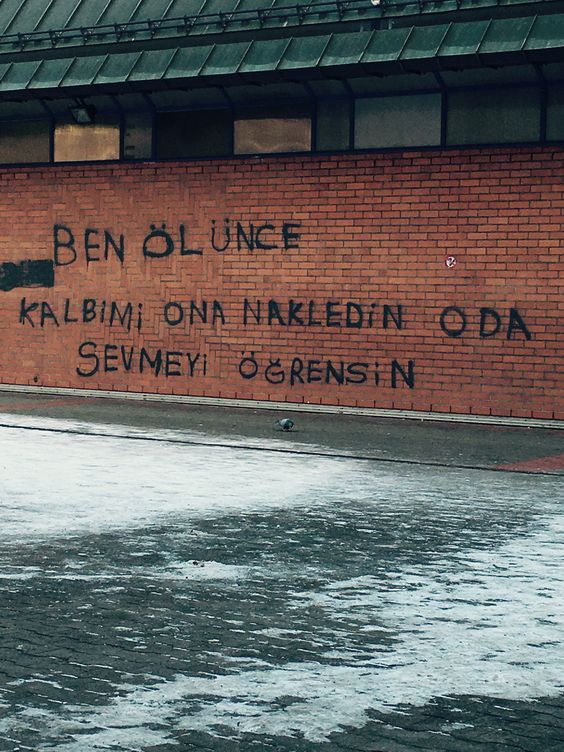 BEN ÖLÜNCE
KALBİMİ ONA NAKLEDİN ODA
SEVMEYİ ÖĞRENSİN